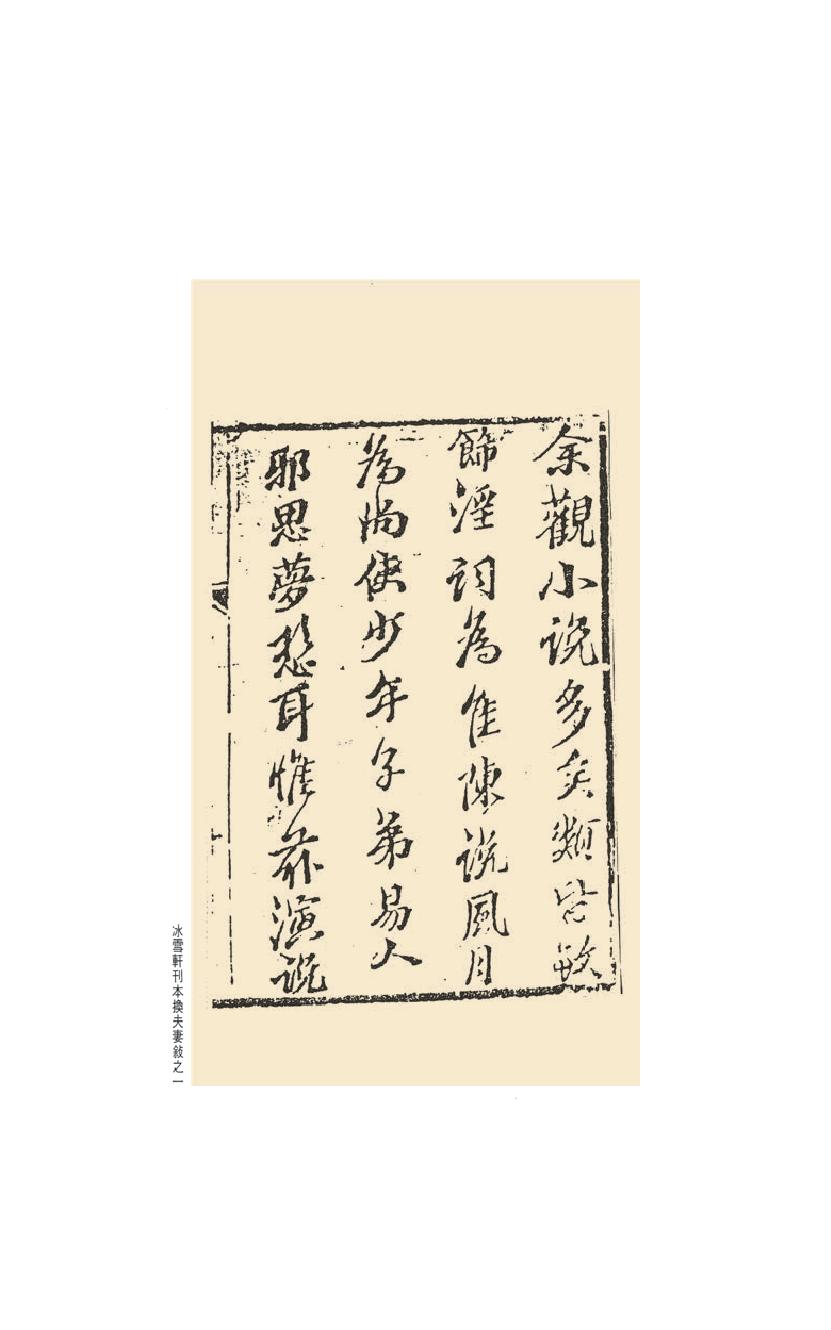 余觀小說多矣類皆敏
飾淫詞為佳陳說風月
為尚使少年子弟易入
邪思夢愁耳惟茲演說
冰雪軒刊本換夫妻敍之一